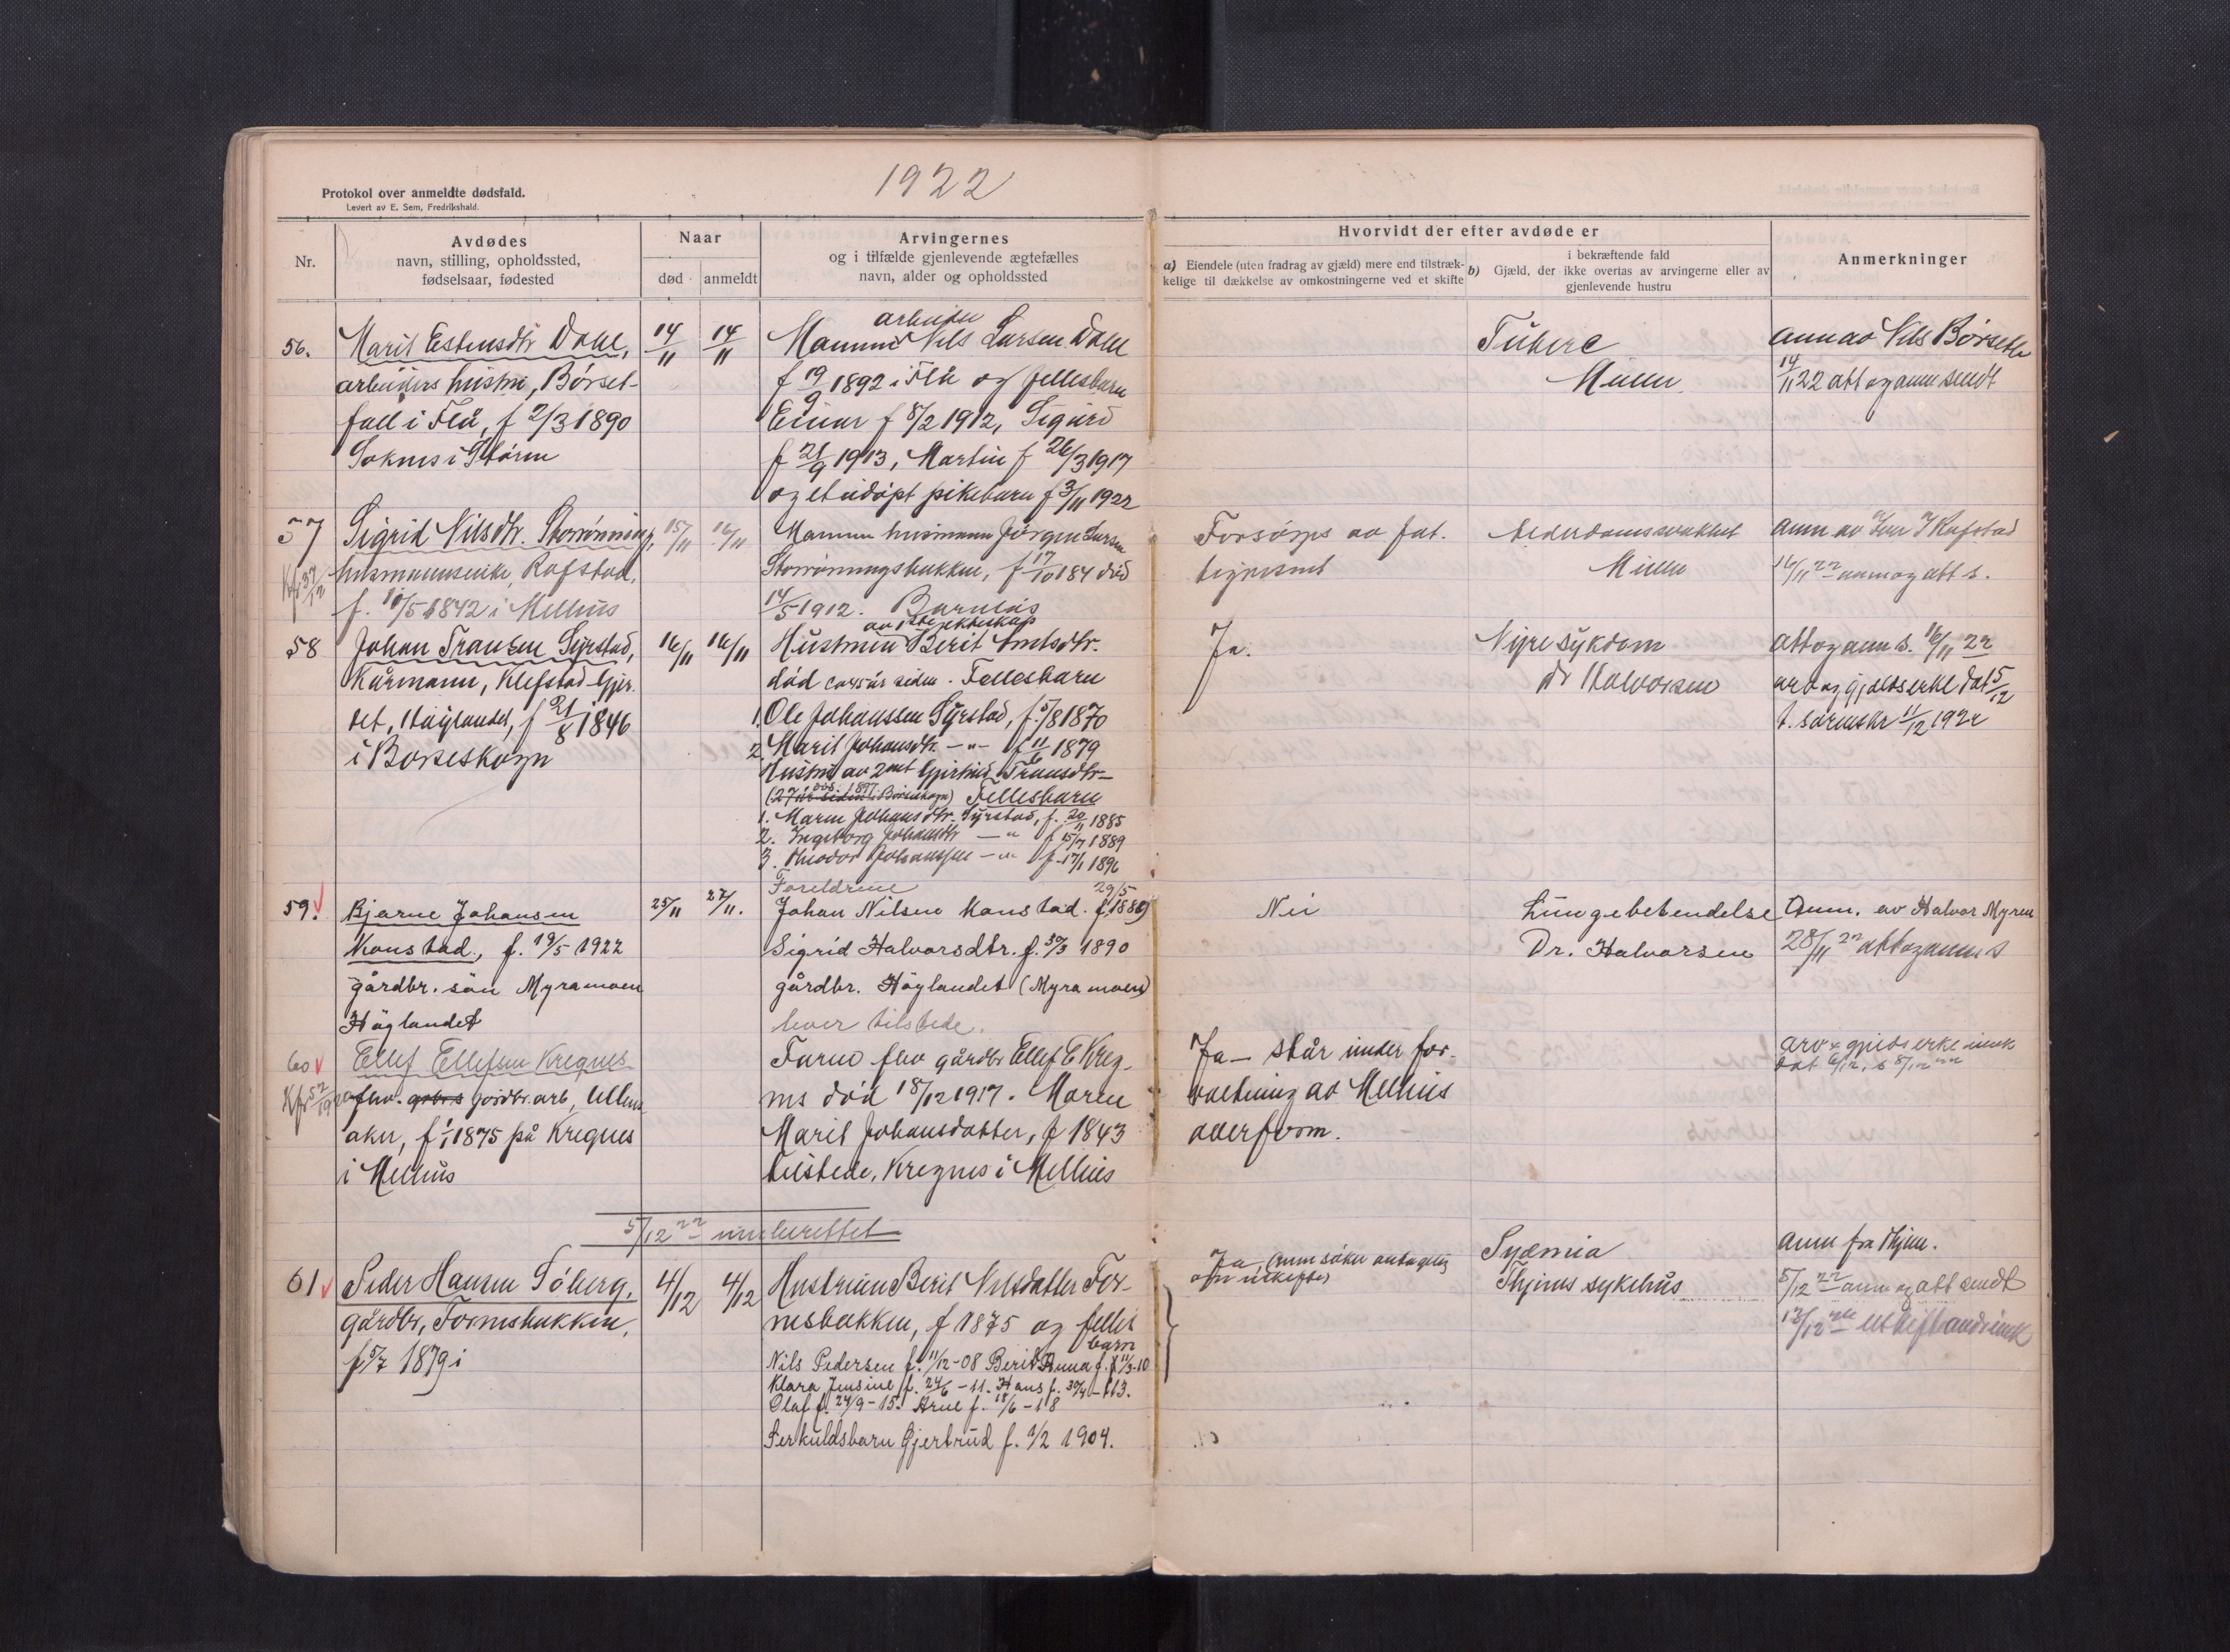 1922
Protokol over anmeldte dødsfald.
Levert av E. Sem, Fredrikshald.
Nr.
Avdødes
navn, stilling, opholdssted,
fødselsaar, fødested
Naar
død
anmeldt
Arvingernes
og i tilfælde gjenlevende ægtefælles
navn, alder og opholdssted
Hvorvidt der efter avdøde er
a) Eiendele (uten fradrag av gjæld) mere end tilstræk-
kelige til dækkelse av omkostningerne ved et skifte
i bekræftende fald
b) Gjæld, der ikke overtas av arvingerne eller av
gjenlevende hustru
Anmerkninger
56.
Marit Estensdtr Dahl,
arbeiders hustru, Børset-
fall i Flå, f 2/3 1890
Soknes i Støren
14/11
14/11
arbeider
Mannen Nils Larsen Dahl
f 19/9 1892 i Flå og fellesbarn
Einar f 8/2 1912, Sigurd
f 21/9 1913, Martin f 26/3 1917
og et udøpt pikebarn f 3/11 1922
Tuberc
Milun
anm av Nils Børseth
14/11 22 att og anm sendt
57
Kfr 37/12
Sigrid Nilsdtr. Storrønning,
husmannsenke, Rofstad,
f. 10/5 1842 i Melhus
15/11
16/11
Mannen husmann Jörgen Larsen
Storrønningsbakken, f 17/10 184 død
14/5 1912. Barnløs
Forsørges av fat.
tigvesenet
Alderdomssvakhet
Milun
16/11 22 anm og att s.
58
Johan Transen Syrstad,
Kårmann, Klefstad
Høylandet, f 21/8 1846
i Børseskogn
16/11
16/11
av 1ste ekteskap
Hustruen Berit Arntsdtr.
død ca 45 år siden. Fellesbarn
1. Ole Johanssen Syrstad, f. 5/8 1870
2. Marit Johansdtr. — „ — f 11/6 1879
Hustru av 2net Gjertrud Transdtr—
(27 år siden i Børseskogn) Fellesbarn
1. Maren Johansdtr. Syrstad, f. 20/11 1885
2. Ingeborg Johansdtr — „ f 15/7 1889
3. Theodor Johanssen — „ — f 17/1 1896
Ja.
Nyresykdom
Dr Halvorsen
att og anm s. 16/11 22
arv og gjeldserkl dat 5/12
t. sorenskr 11/12 1922
59.
Bjarne Johansen
Konstad, f. 19/5 1922
gårdbr. sön Myramoen
Höglandet
25/11
27/11.
Foreldrene
29/5
Johan Nilsen Konstad. f. 1889
Sigrid Halvorsdtr. f. 30/3 1890
gårdbr. Höylandet (Myramoen)
bor tilstede.
Nei
Lungebetendelse
Dr. Halvorsen
Anm. av Halvor Myren
28/11 22 att og anm s
60
Kfr 52/1920
Ellef Ellefsen Kregnes
fhv. gårdbr. arb, Ullens
aker, f 1/1 1875 på Kregnes
i Melhus
Faren fhv gårdbr Ellef E Kreg-
nes död 18/12 1917. Moren
Marit Johansdatter, f 1843
tilstede, Kregnes i Melhus
Ja — står under for-
valtning av Melhus
overform.
arv & gjeldserkl
dat 6/12, s 8/12 22
5/12 22
61
Peder Hansen Söberg,
gårdbr, Formsbakken,
f 5/7 1879 i
4/12
4/12
Hustruen Berit Nilsdatter For-
mobakken, f 1875 og felles
barn
Nils Pedersen f. 11/12-08 Berit Anna f. 11/3-10
Klara Jensine f. 24/6-11. Hans f. 30/4-13.
Olaf f. 24/9-15. Arne f. 18/6-18
Serkuldsbarn Gjertrud f. 1/2 1904.
Ja
Pyæmia
Thjems sykehus
anm fra Thjem.
5/12 22 anm og att sendt
13/12